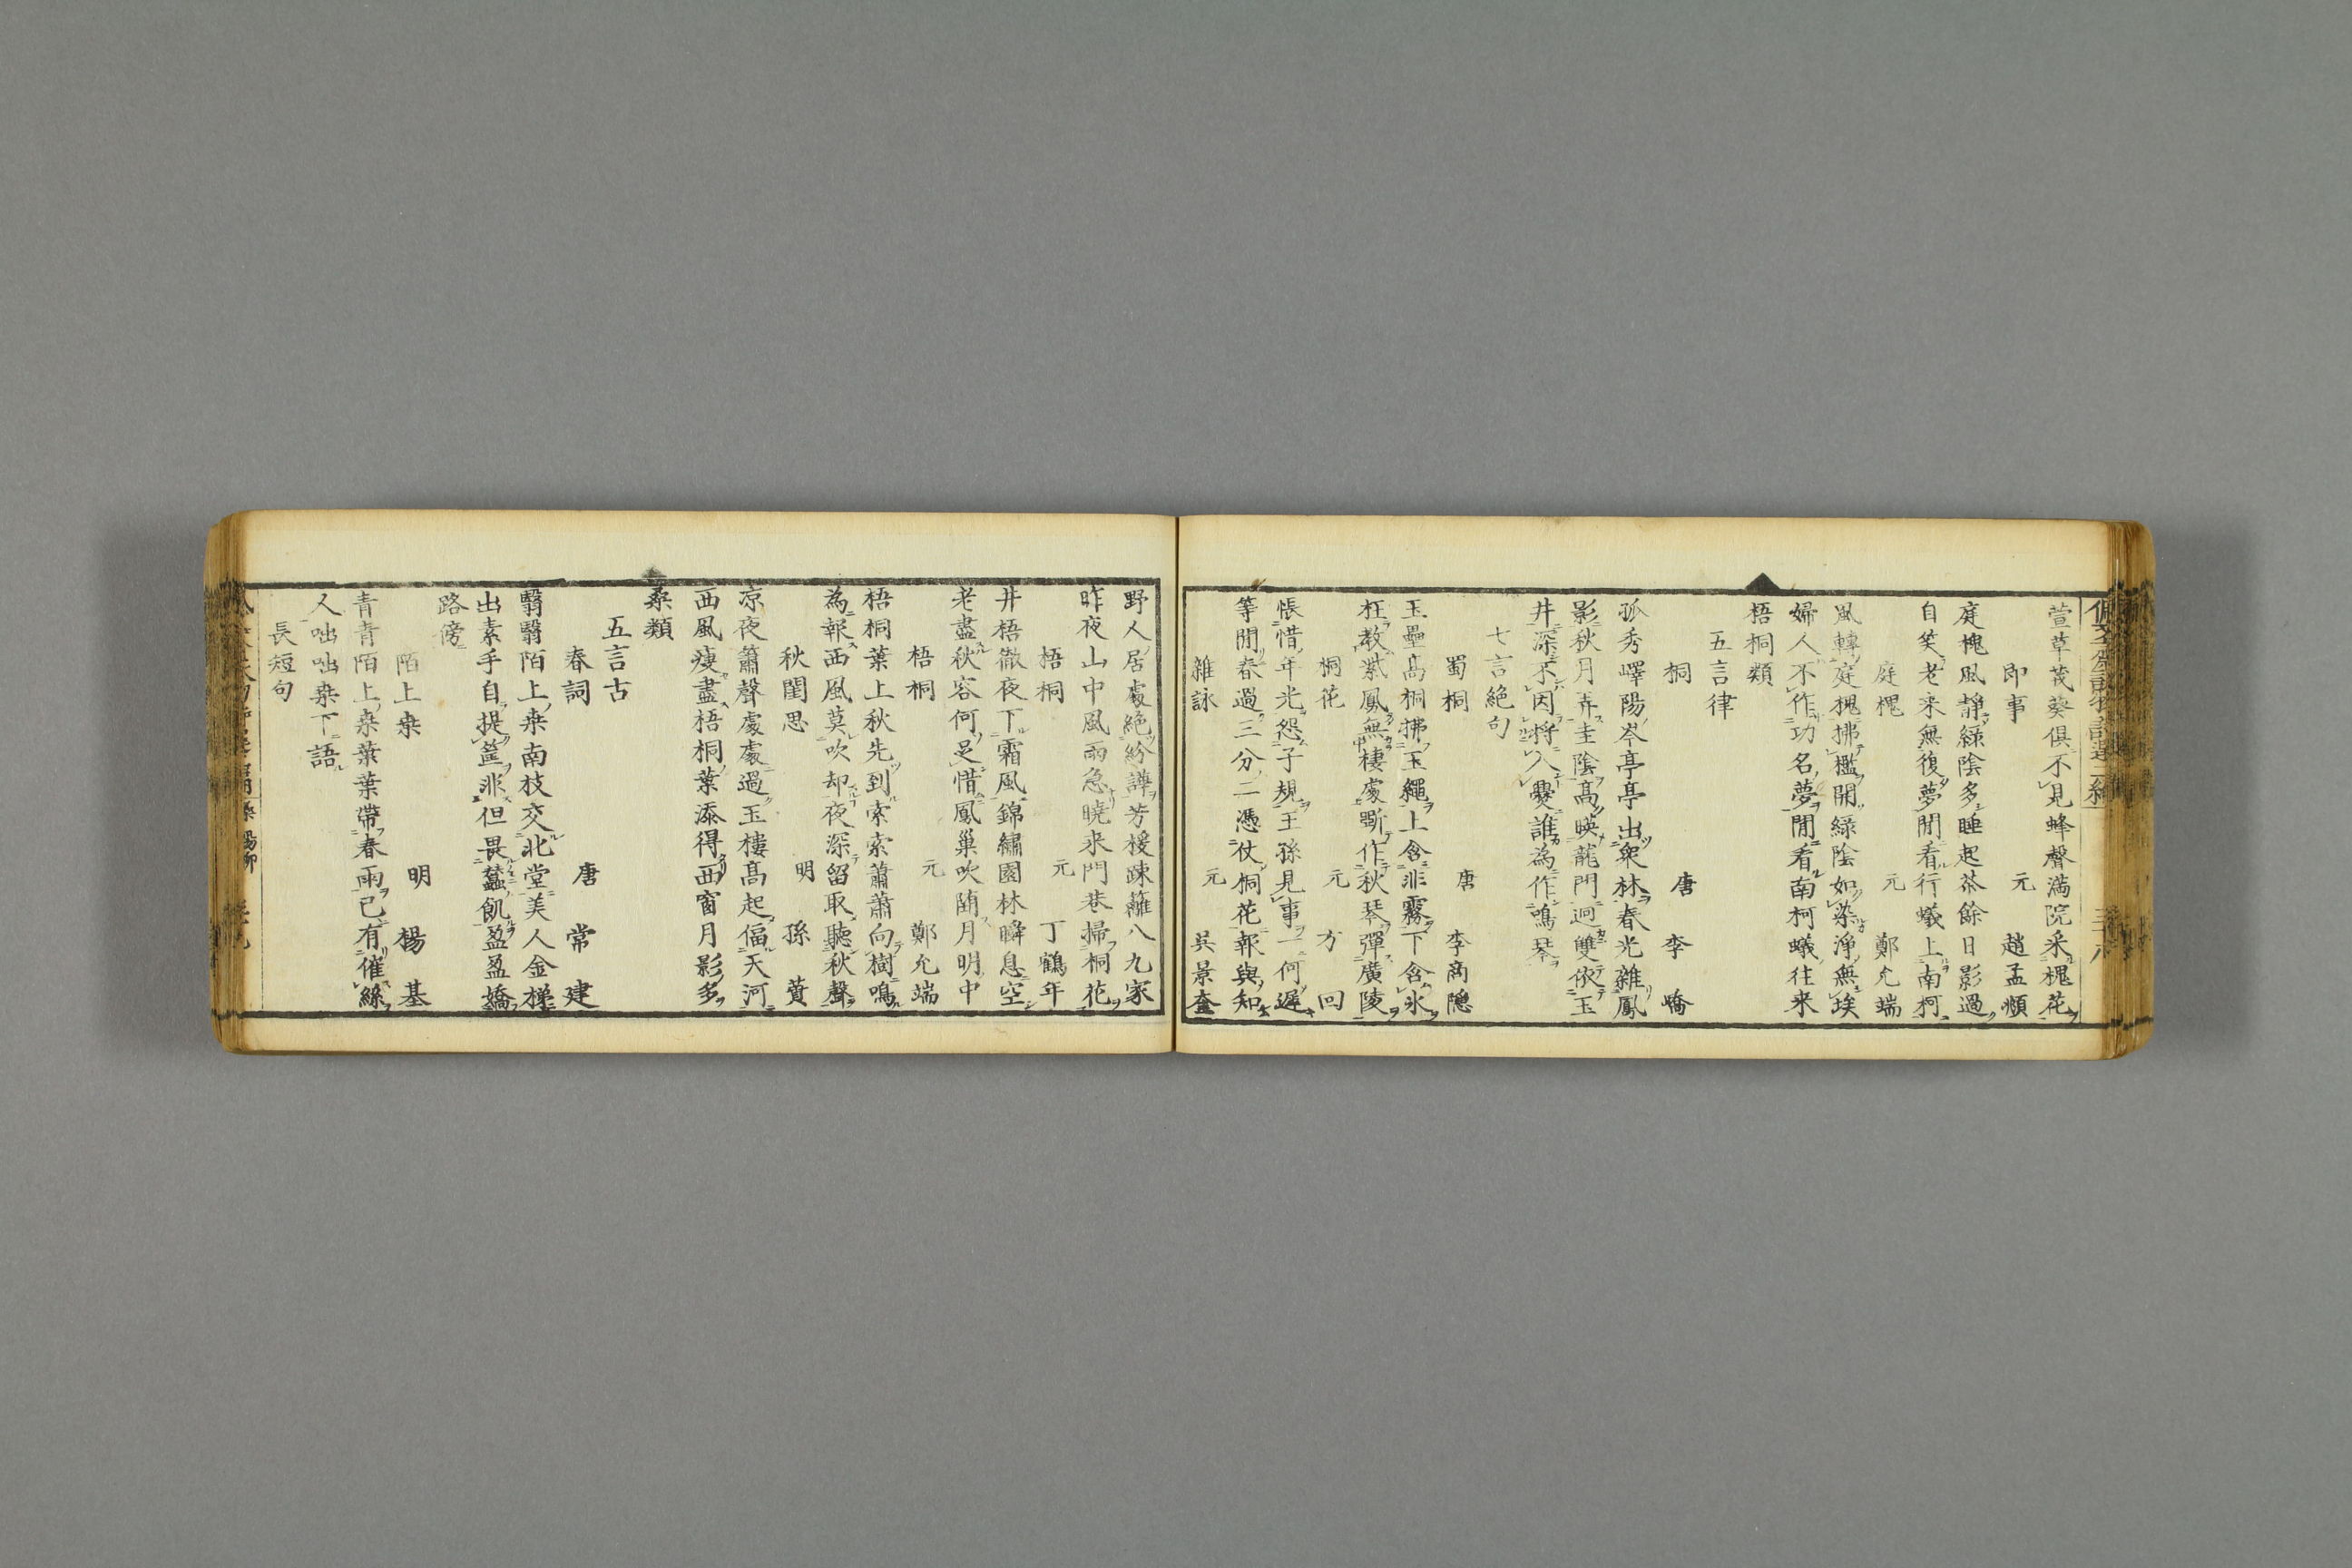 萱草茂葵俱不見蜂聲滿院采槐花
即事 元 趙孟頫
庭槐風靜綠陰多睡起茶餘日影過
自笑老来無復夢閒看行蟻上南柯
庭槐 元 鄭允端
風轉庭槐拂檻開綠陰如染淨無埃
婦人不作功名夢閒看南柯蟻往来
梧桐類
五言律
桐 唐 李嶠
孤秀嶧陽岑亭亭出衆林春光雜鳳
影秋月弄圭陰高暎龍門迥雙依玉
井深不因將入爨誰為作鳴琴
七言絶句
蜀桐 唐 李商隠
玉壘高桐拂玉繩上含非霧下含氷
枉教紫鳳無棲處斲作秋琴彈廣陵
桐花 元 方回
悵惜年光怨子規王孫見事一何遲
等閒春過三分二憑仗桐花報與知
雜詠 元 吳景奎
野人居處絶紛譁芳援疎籬八九家
昨夜山中風雨急曉来門巷掃桐花
梧桐 元 丁鶴年
井梧徹夜下霜風錦繡園林瞬息空
老盡秋容何足惜鳳巢吹隨月明中
梧桐 元 鄭允端
梧桐葉上秋先到索索蕭蕭向樹鳴
為報西風莫吹却夜深留取聽秋聲
秋閨思 明 孫蕡
凉夜簫聲處處過玉樓高起偪天河
西風瘦盡梧桐葉添得西窗月影多
桒類
五言古
春詞 唐 常建
翳翳陌上桒南枝交北堂美人金梯
出素手自提筐非但畏蠶飢盈盈嬌
路傍
陌上桒 明 楊基
青青陌上桒葉葉帶春雨已有催絲
人咄咄桒下語
長短句